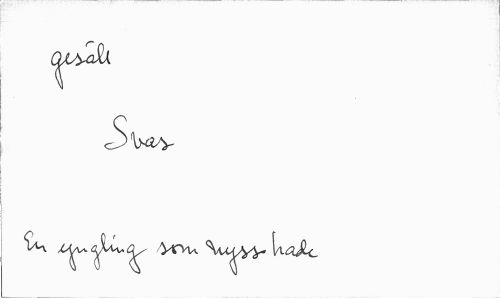 gesäll
Svas
En yngling som nyss hade